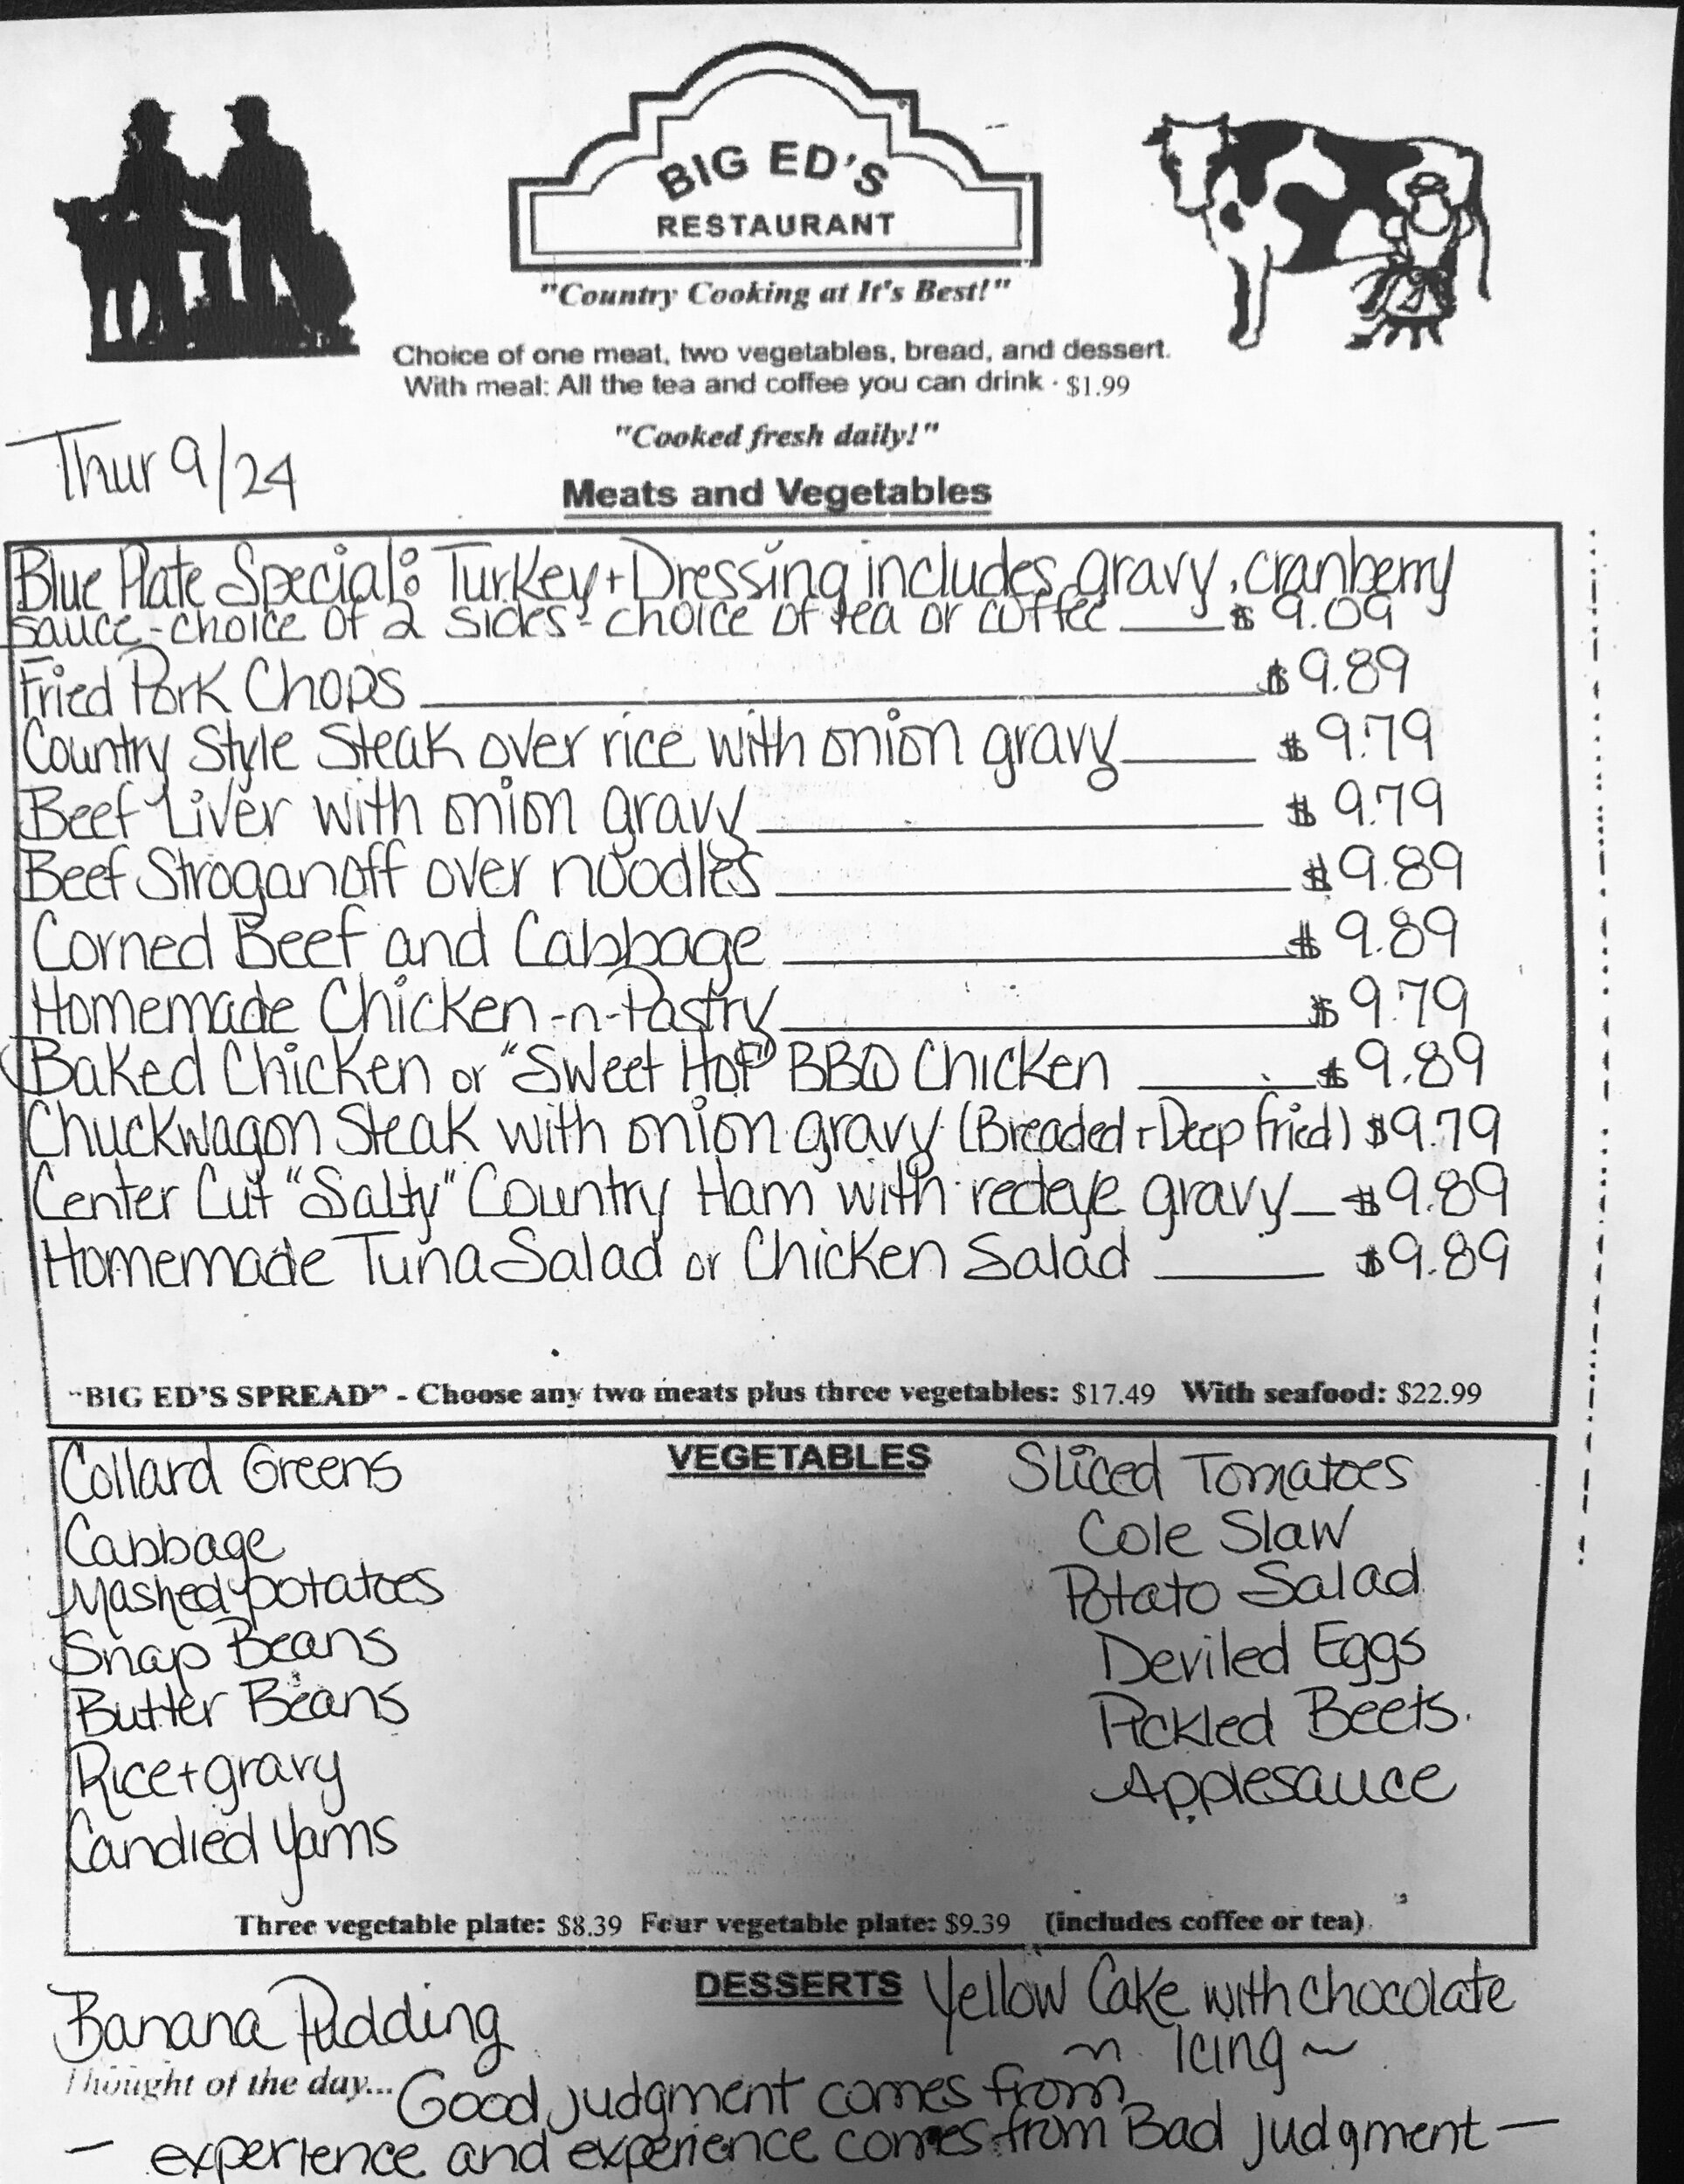 BIG ED'S
RESTAURANT
"Country Cooking at It's Best!"
Choice of one meat, two vegetables, bread, and dessert.
With meal: All the tea and coffee you can drink - $1.99
"Cooked fresh daily!"
Thur 9/24
Meats and Vegetables
Blue Plate Special: Turkey + Dressing includes gravy, cranberry
sauce - choice of 2 sides - choice of tea or coffee $ 9.09
Fried Pork Chops $ 9.89
Country Style Steak over rice with onion gravy $ 9.79
Beef Liver with onion gravy $ 9.79
Beef Stroganoff over noodles $ 9.89
Corned Beef and Cabbage $ 9.89
Homemade Chicken -n- Pastry $ 9.79
Baked Chicken or "Sweet Hot" BBQ Chicken $ 9.89
Chuckwagon Steak with onion gravy (Breaded + Deep fried) $9.79
Center Cut "Salty" Country Ham with redeye gravy $9.89
Homemade Tuna Salad or Chicken Salad $9.89
"BIG ED'S SPREAD" - Choose any two meats plus three vegetables: $17.49 With seafood: $22.99
VEGETABLES
Collard Greens
Cabbage
Mashed potatoes
Snap Beans
Butter Beans
Rice + gravy
Candied yams
Sliced Tomatoes
Cole Slaw
Potato Salad
Deviled Eggs
Pickled Beets.
Applesauce
Three vegetable plate: $8.39 Four vegetable plate: $9.39 (includes coffee or tea)
DESSERTS
Banana Pudding
Yellow Cake with chocolate
~ Icing ~
Thought of the day... Good judgment comes from
— experience and experience comes from Bad judgment —